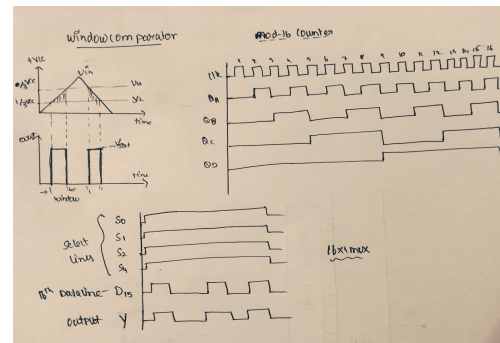 Window comparator
+Vcc
2/3Vcc
Vin
VH
1/3Vcc
VL
time
Vout
time
window
mod-16 counter
1 2 3 4 5 6 7 8 9 10 11 12 13 14 15 16
Clk
QA
QB
QC
QD
select
lines
S0
S1
S2
S4
16th Dataline - D15
output Y
16x1 mux